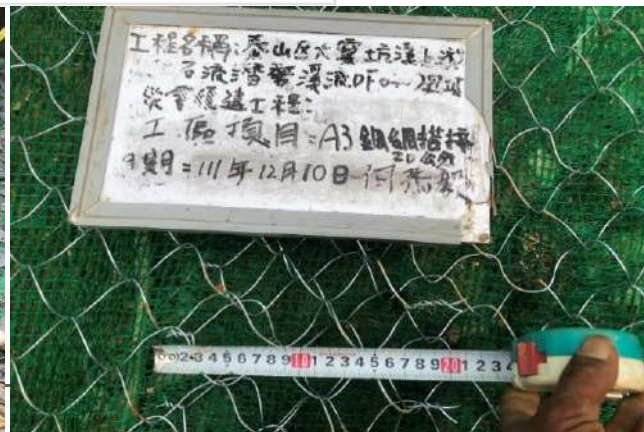 工程名稱:泰山区大窠坑溪上游
石流潛勢溪流DF
災害復建工程:
工區項目=A3 鋼網搭接
20公分
日期=111年12月10日
2 3 4 5 6 7 8 9 10 1 2 3 4 5 6 7 8 9 20 1 2 3